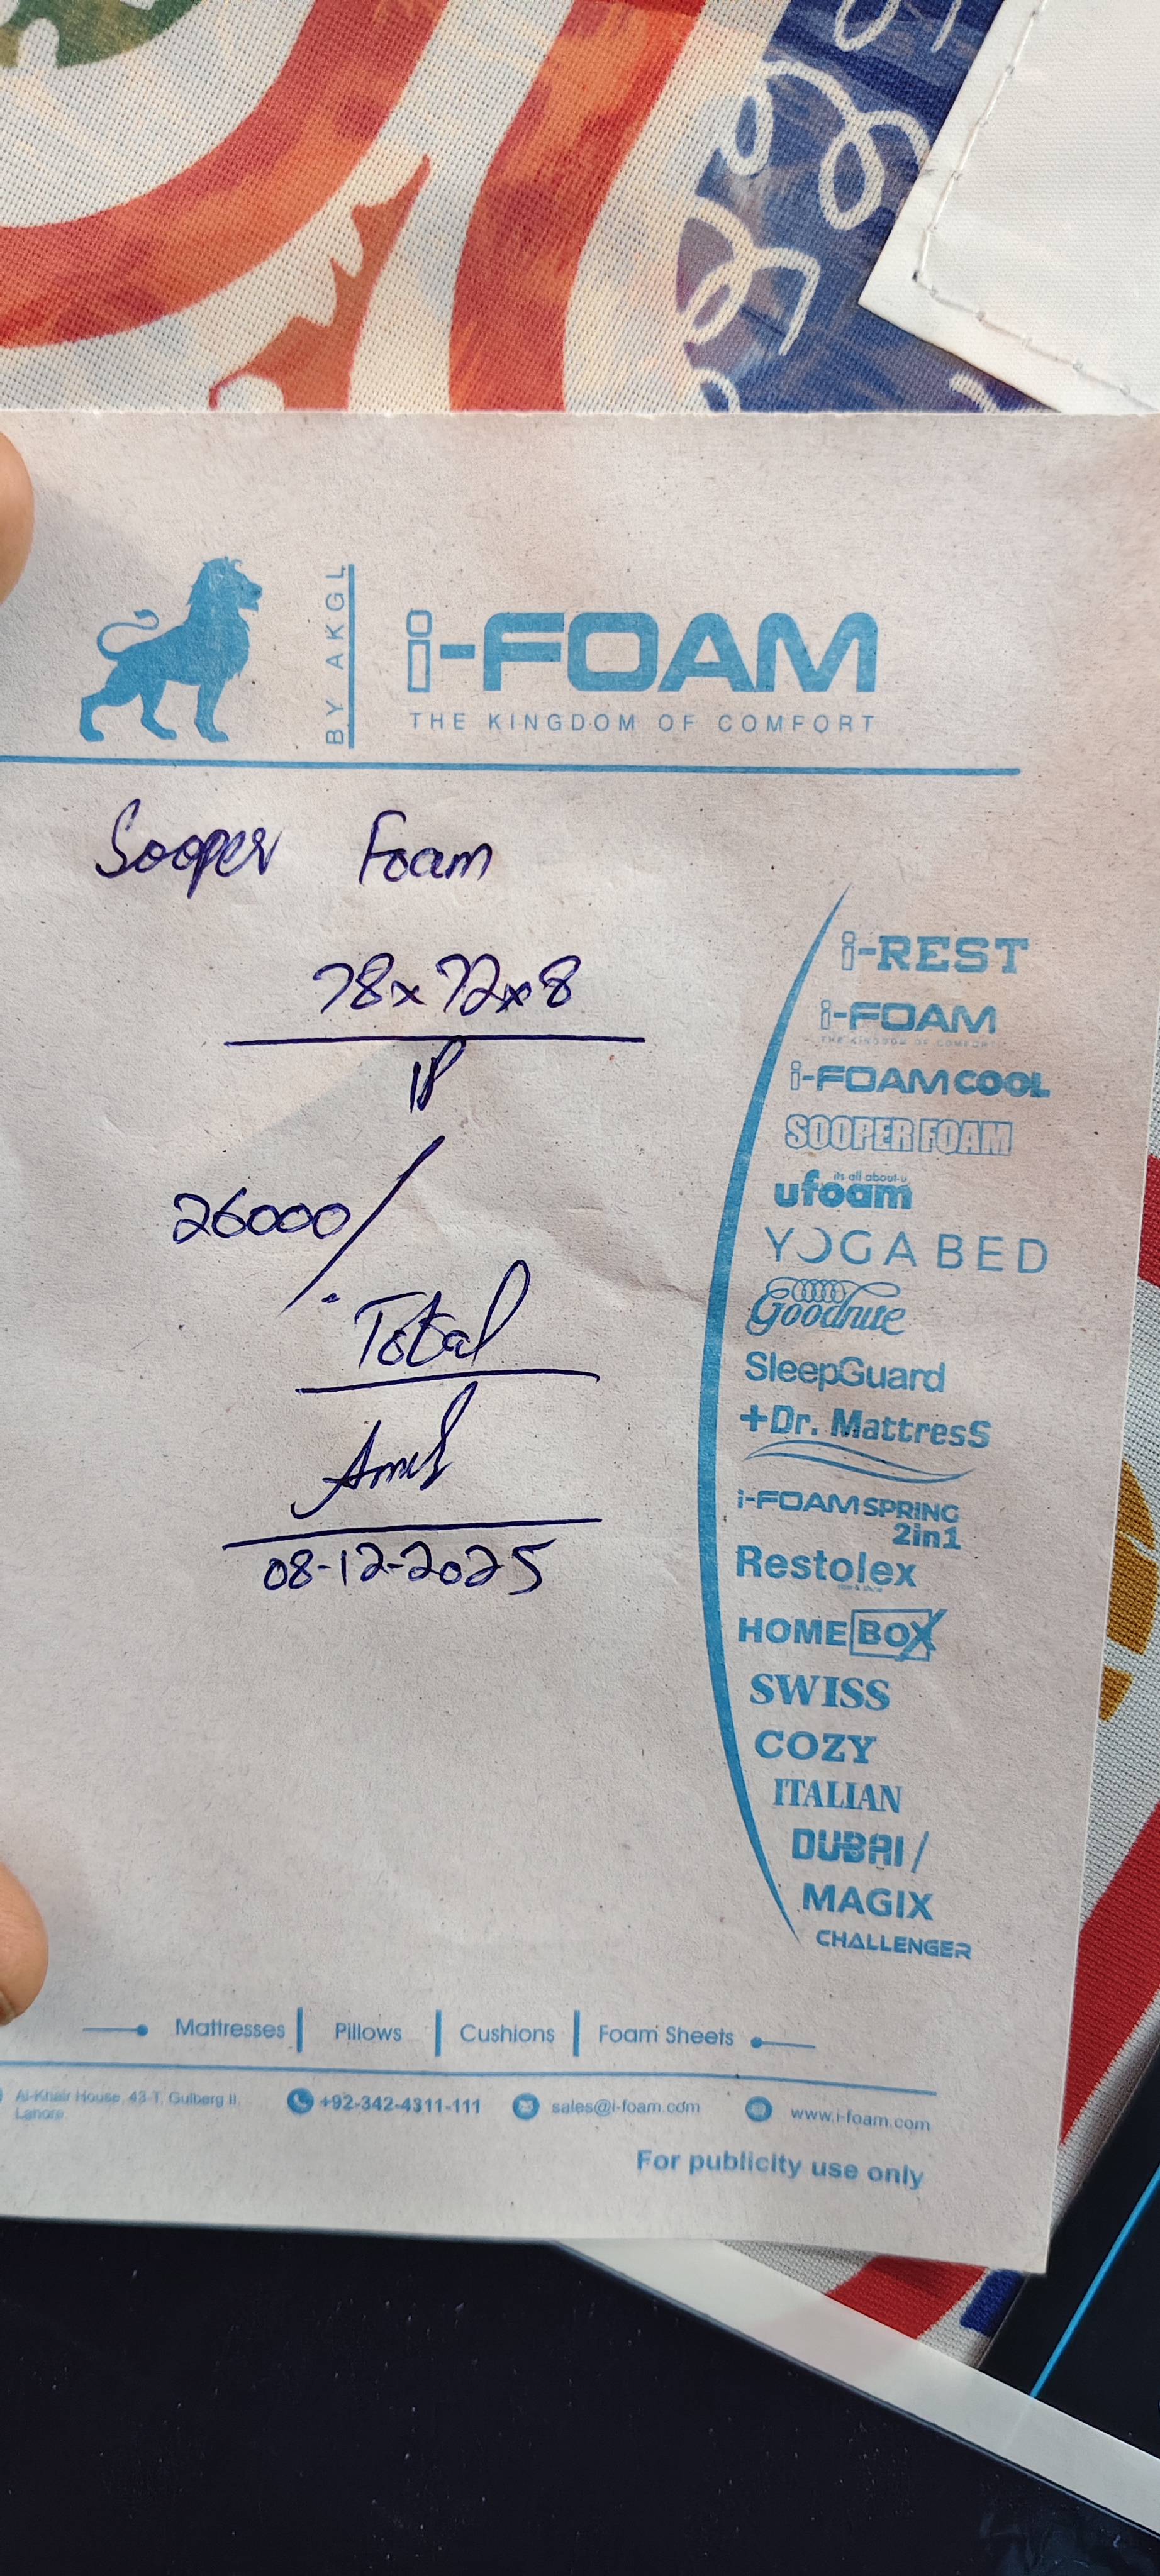 BY AKGL
i-FOAM
THE KINGDOM OF COMFORT
Sooper Foam
78x72x8
26000/
Total
08-12-2025
i-REST
i-FOAM
THE KINGDOM OF COMFORT
i-FOAM COOL
SOOPER FOAM
its all about u
ufoam
YOGA BED
Goodnite
SleepGuard
+Dr. MattresS
i-FOAM SPRING
2in1
Restolex
HOME BOX
SWISS
COZY
ITALIAN
DUBAI /
MAGIX
CHALLENGER
Mattresses | Pillows | Cushions | Foam Sheets
Al-Khair House, 43-T, Gulberg II,
Lahore.
+92-342-4311-111
sales@i-foam.com
www.i-foam.com
For publicity use only